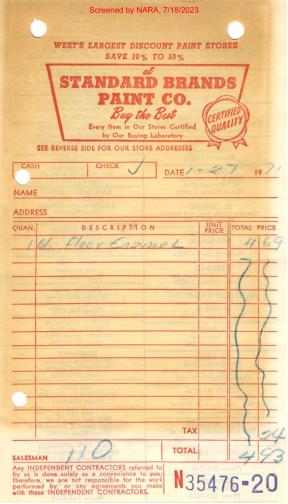 Screened by NARA, 7/18/2023
WEST'S LARGEST DISCOUNT PAINT STORES
SAVE 10% TO 50%
at
STANDARD BRANDS
PAINT CO.
Buy the Best
CERTIFIED QUALITY
Every Item in Our Stores Certified
by Our Buying Laboratory
SEE REVERSE SIDE FOR OUR STORE ADDRESSES
CASH CHECK √ DATE 1-29 1971
NAME
ADDRESS
QUAN. DESCRIPTION UNIT PRICE TOTAL PRICE
1 Floor Enamel 4 69
TAX 24
SALESMAN 110 TOTAL 4 93
Any INDEPENDENT CONTRACTORS referred to
by us is done solely as a convenience to you;
therefore, we are not responsible for the work
performed by, or any agreements you make
with these INDEPENDENT CONTRACTORS.
N35476-20